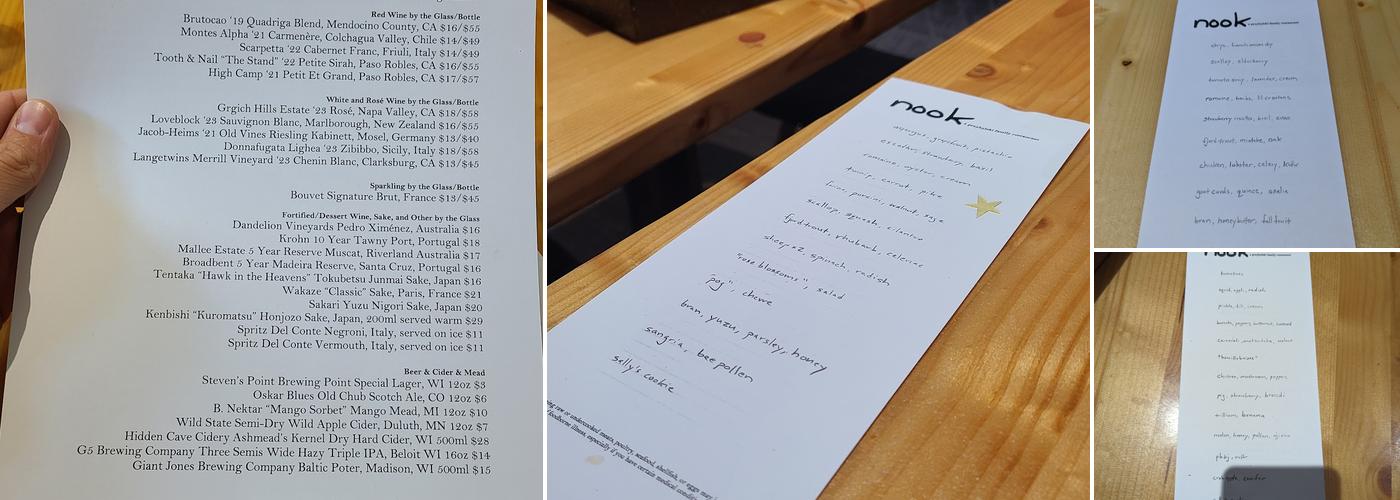 Red Wine by the Glass/Bottle
Brutocao '19 Quadriga Blend, Mendocino County, CA $16/$55
Montes Alpha '21 Carmenère, Colchagua Valley, Chile $14/$49
Scarpetta '22 Cabernet Franc, Friuli, Italy $14/$49
Tooth & Nail "The Stand" '22 Petite Sirah, Paso Robles, CA $16/$55
High Camp '21 Petit Et Grand, Paso Robles, CA $17/$57
White and Rosé Wine by the Glass/Bottle
Grgich Hills Estate '23 Rosé, Napa Valley, CA $18/$58
Loveblock '23 Sauvignon Blanc, Marlborough, New Zealand $16/$55
Jacob-Heims '21 Old Vines Riesling Kabinett, Mosel, Germany $13/$40
Donnafugata Lighea '23 Zibibbo, Sicily, Italy $18/$58
Langetwins Merrill Vineyard '23 Chenin Blanc, Clarksburg, CA $13/$45
Sparkling by the Glass/Bottle
Bouvet Signature Brut, France $13/$45
Fortified/Dessert Wine, Sake, and Other by the Glass
Dandelion Vineyards Pedro Ximénez, Australia $16
Krohn 10 Year Tawny Port, Portugal $18
Mallee Estate 5 Year Reserve Muscat, Riverland Australia $17
Broadbent 5 Year Madeira Reserve, Santa Cruz, Portugal $16
Tentaka "Hawk in the Heavens" Tokubetsu Junmai Sake, Japan $16
Wakaze "Classic" Sake, Paris, France $21
Sakari Yuzu Nigori Sake, Japan $20
Kenbishi "Kuromatsu" Honjozo Sake, Japan, 200ml served warm $29
Spritz Del Conte Negroni, Italy, served on ice $11
Spritz Del Conte Vermouth, Italy, served on ice $11
Beer & Cider & Mead
Steven's Point Brewing Point Special Lager, WI 12oz $3
Oskar Blues Old Chub Scotch Ale, CO 12oz $6
B. Nektar "Mango Sorbet" Mango Mead, MI 12oz $10
Wild State Semi-Dry Wild Apple Cider, Duluth, MN 12oz $7
Hidden Cave Cidery Ashmead's Kernel Dry Hard Cider, WI 500ml $28
G5 Brewing Company Three Semis Wide Hazy Triple IPA, Beloit WI 16oz $14
Giant Jones Brewing Company Baltic Poter, Madison, WI 500ml $15
nook
asparagus, grapefruit, pistachio
escolar, strawberry, basil
romaine, oyster, cream
turnip, carrot, pike
farro, porcini, walnut, sage
scallop, squash, cilantro
fjord trout, rhubarb, celeriac
sheepsz, spinach, radish
"rose blossoms", salad
"pog", chowe
bran, yuzu, parsley, honey
sangria, bee pollen
sally's cookie
raw or undercooked meats, poultry, seafood, shellfish, or eggs may
foodborne illness, especially if you have certain medical
nook
scallop, elderberry
tomato soup, lavender, cream
romaine, herbs, croutons
fjord trout, mistake, oak
chicken, lobster, celery,
goat curds, quince,
bran, honeybutter, fall fruit
nook
squid, apple, radish
pickle, dill, cream
chicken, mushroom, pepper
pig, strawberry, broccoli
melon, honey, pollen,
pb&j, milk